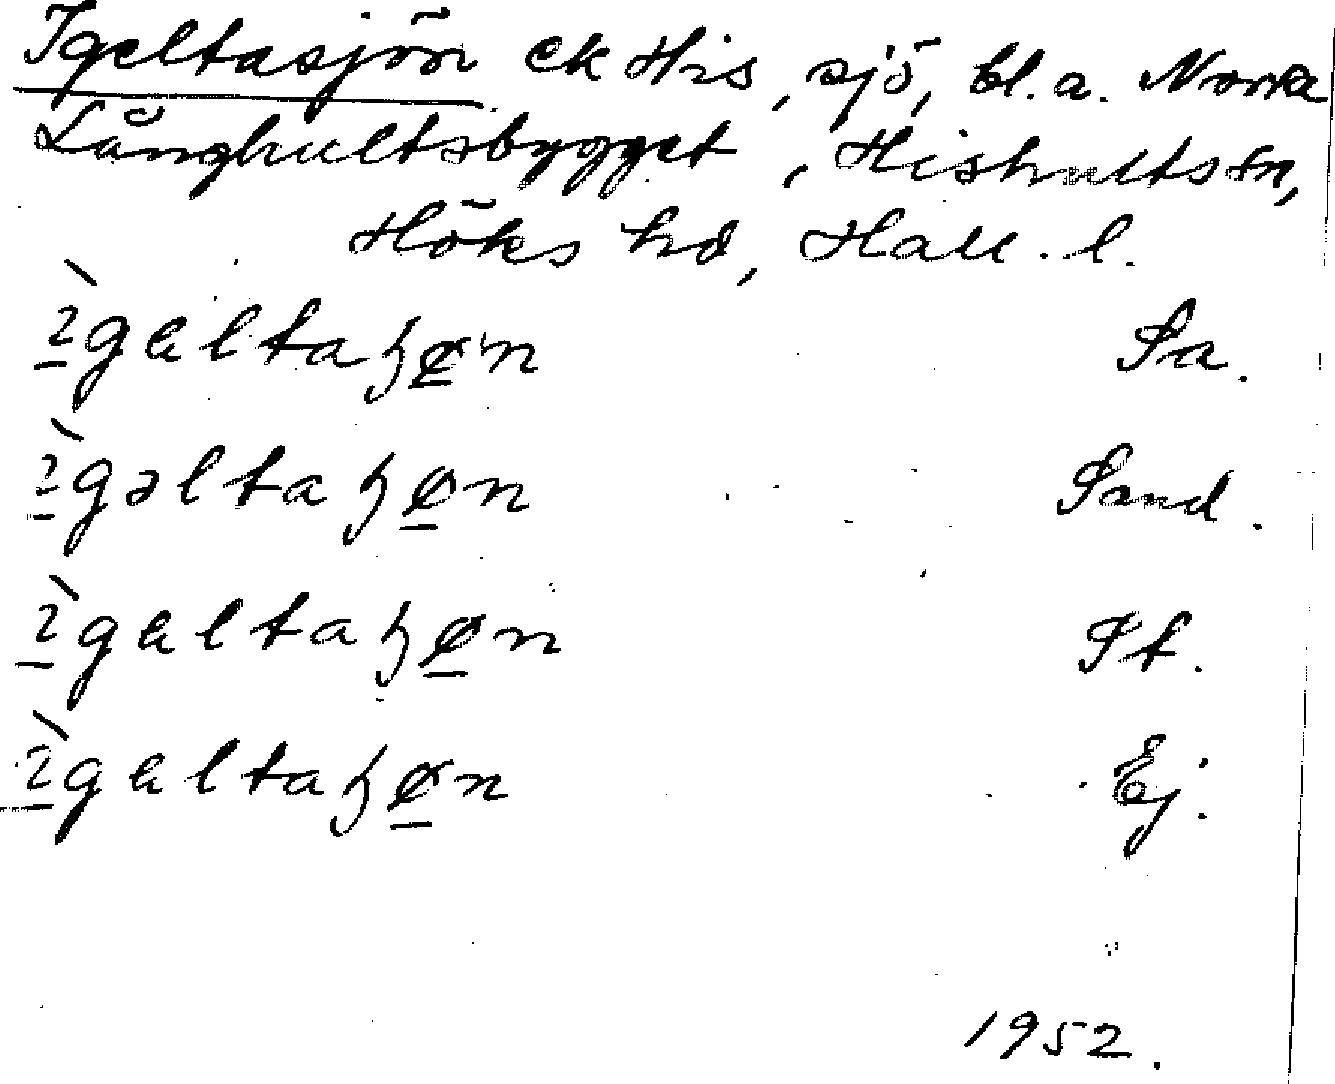 Igeltasjön ek His, sjö, bl.a. Norra
Långhultsbygget, Hishults sn,
Höks hd, Hall. l.
ìgeltaɧøn Sa.
ìgəltaɧøn Sand.
ìgeltaɧøn St.
ìgeltaɧøn Ej.
1952.